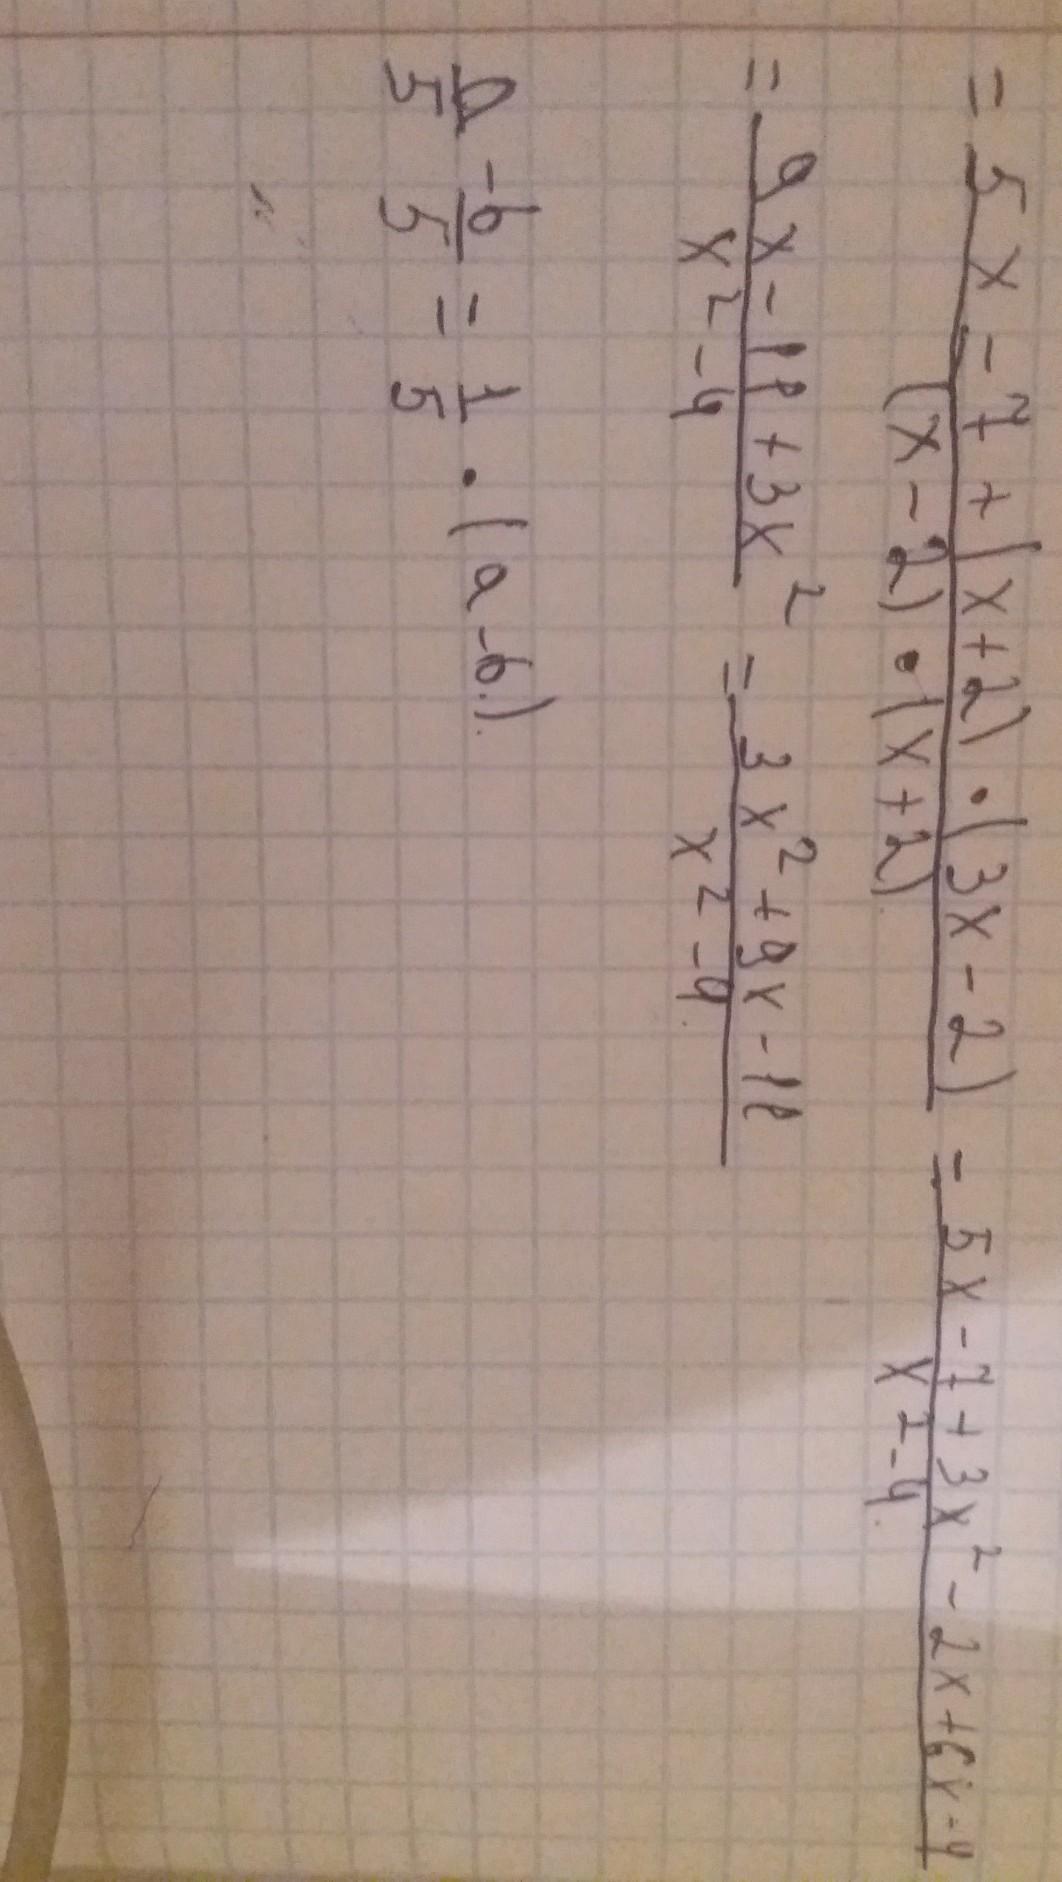 = \frac{5x - 7 + (x+2) \cdot (3x - 2)}{(x - 2) \cdot (x + 2)} = \frac{5x - 7 + 3x^2 - 2x + 6x - 4}{x^2 - 4}
= \frac{9x - 11 + 3x^2}{x^2 - 4} = \frac{3x^2 + 9x - 11}{x^2 - 4}
\frac{a}{5} - \frac{b}{5} = \frac{1}{5} \cdot (a - b)